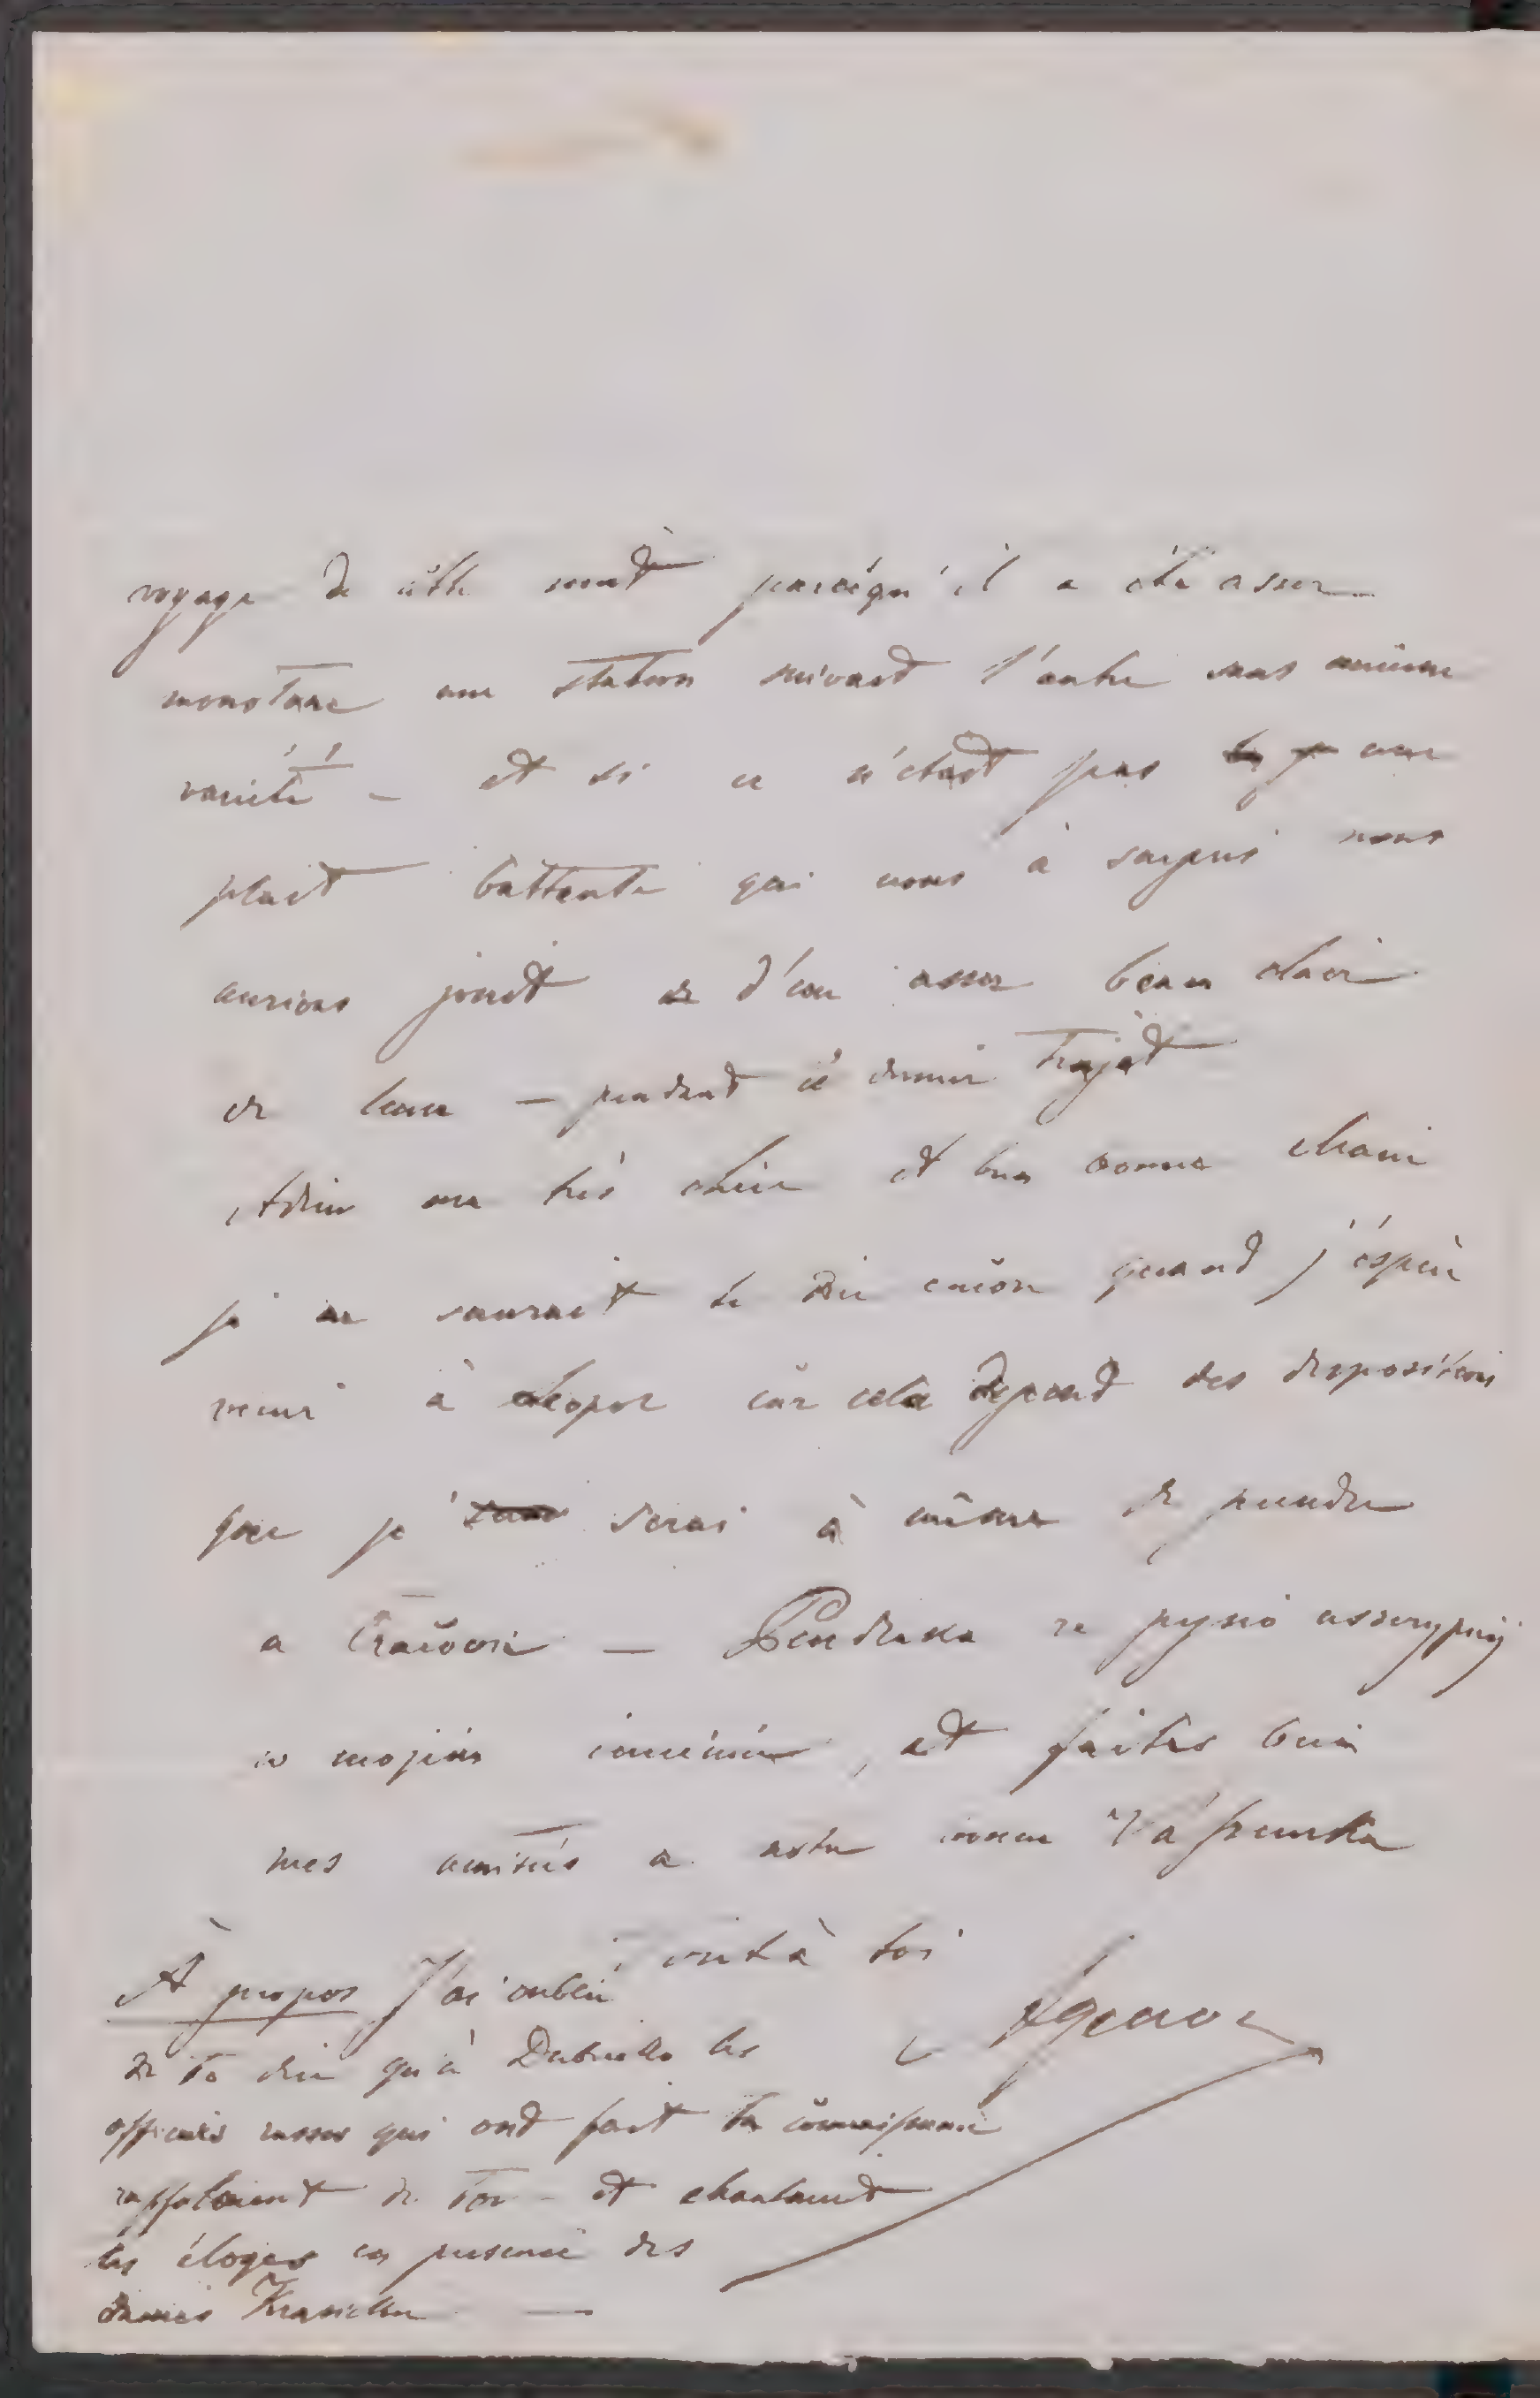 voyage de cette nuit parcéqu'il a été assez
monotone une station suivant l'autre sans aucune
varieté – et si ce n'etait pas une
pluit battante qui nous à surpris nous
aurions jouit d'un assez beau clair
de lune – pendant cé dernier trajèt
Adieu ma très chère et bien bonne
je ne saurait te dire encore quand j'éspère
venir à car cela depend des dispositions
que je serai à même de prendre
a Cracovie –
w mojém imieniu, et faites bien
mes amitiés a notre bonne
tout à toi
Agenor
À propos J'ai oublié
de te dire qu'à Dubiecko les
officiers russes qui ont fait ta connaissance
raffolaient de toi – et chantaient
tes éloges en presence des
dames Krasicka –